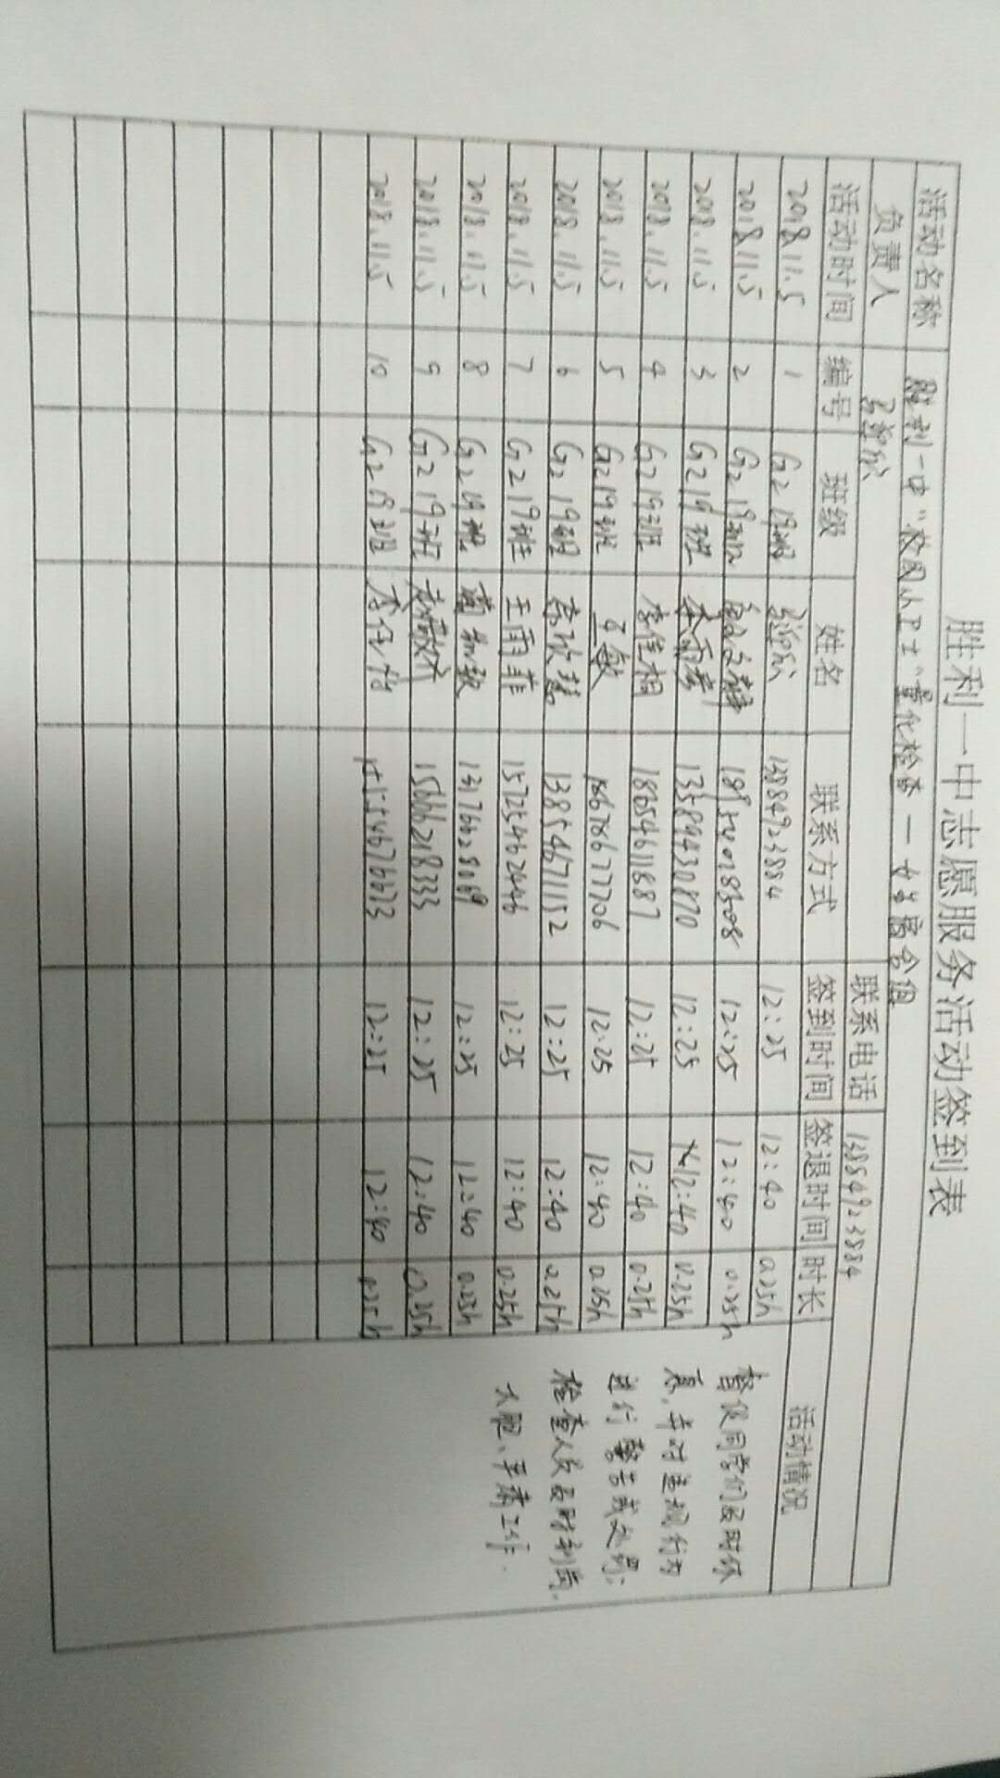 胜利一中志愿服务活动签到表
活动名称 胜利一中“校园小卫士”量化检查一女生宿舍组
负责人 联系电话 13884923884
活动时间 编号 班级 姓名 联系方式 签到时间 签退时间 时长 活动情况
2018.11.5 1 G219班 13884923884 12:25 12:40 0.25h
2018.11.5 2 G219班 18954018308 12:25 12:40 0.25h
2018.11.5 3 G219班 13589430870 12:25 12:40 0.25h
2018.11.5 4 G219班 李佳桐 18654611687 12:25 12:40 0.25h
2018.11.5 5 G219班 王敏 18678677706 12:25 12:40 0.25h
2018.11.5 6 G219班 13854671152 12:25 12:40 0.25h
2018.11.5 7 G219班 王雨菲 15725462446 12:25 12:40 0.25h
2018.11.5 8 G219班 13176628069 12:25 12:40 0.25h
2018.11.5 9 G219班 15666218333 12:25 12:40 0.25h
2018.11.5 10 G219班 12:25 12:40 0.25h
督促同学们及时休
息,并对违规行为
进行警告或处罚;
检查人员及时到岗,
大胆、严肃工作.